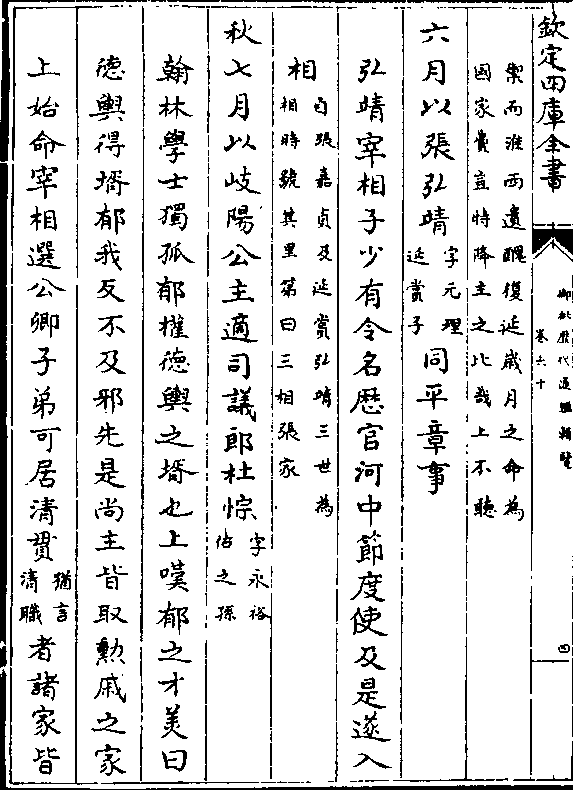 欽定四庫全書
御批厯代通鑑輯覽
卷六十
四
禦而淮西遺醜復延歲月之命為
國家費豈特降主之比哉上不聽
六月以張弘靖字元理延賞子同平章事
弘靖宰相子少有令名厯官河中節度使及是遂入
相自張嘉貞及延賞弘靖三世為相時號其里第曰三相張家
秋七月以岐陽公主適司議郎杜悰字永裕佑之孫
翰林學士獨孤郁權德輿之壻也上嘆郁之才美曰
德輿得壻郁我反不及邪先是尚主皆取勲戚之家
上始命宰相選公卿子弟可居清貫猶言清職者諸家皆